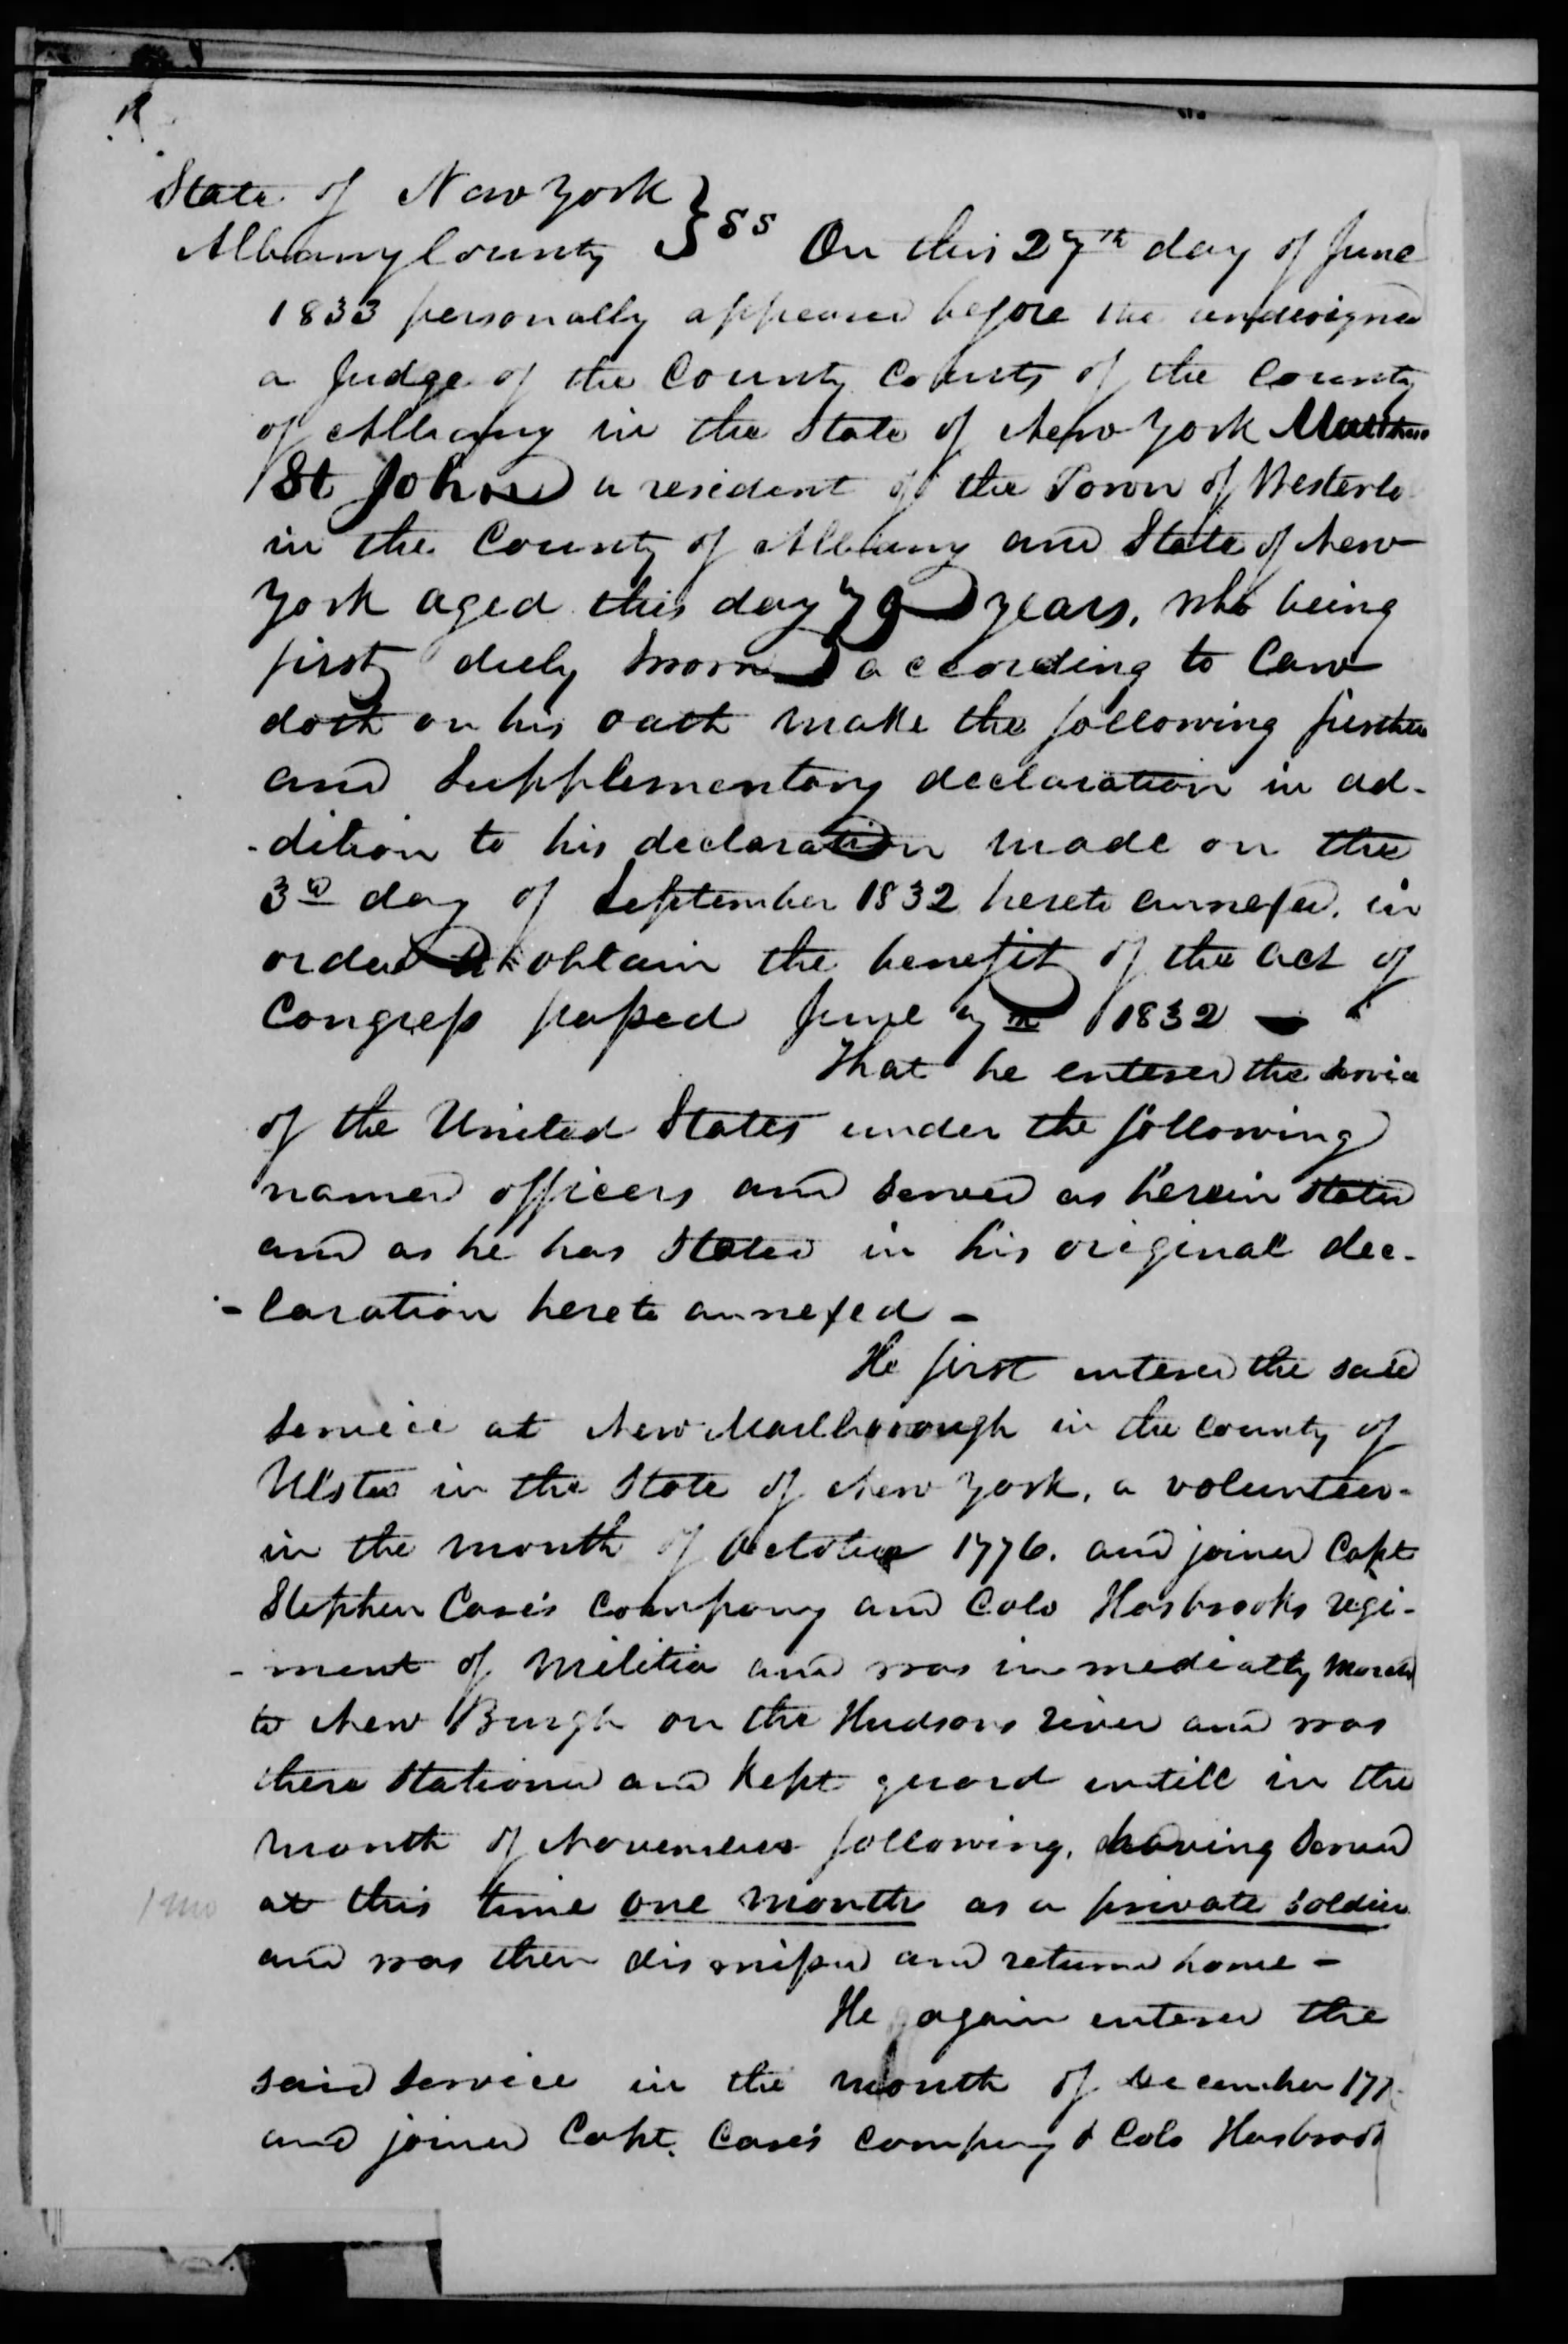 State of New York
Albany County } SS On this 27th day of June
1833 personally appeared before the undersigned
a Judge of the County Courts of the County
of Albany in the State of New York Matthew
St John a resident of the Town of Westerlo
in the County of Albany and State of New
York aged this day 79 years, who being
first duly sworn according to Law
doth on his oath make the following further
and Supplementary declaration in ad-
-dition to his declaration made on the
3d day of September 1832 hereto annexed, in
order to obtain the benefit of the act of
Congress passed June 7th 1832 -
That he entered the service
of the United States under the following
named officers and served as herein stated
and as he has stated in his original dec-
-laration hereto annexed -
He first entered the said
service at New Marlborough in the County of
Ulster in the State of New York, a volunteer-
in the month of October 1776. and joined Capt
Stephen Case's Company and Colo Hasbrooks regi-
-ment of Militia and was immediatly March
to New Burgh on the Hudsons river and was
there stationed and kept guard untill in the
month of November following, having served
1 mo at this time one month as a private soldier
and was then dismissed and returned home -
He again entered the
said service in the month of December 177
and joined Capt. Case's Company & Colo Hasbrook